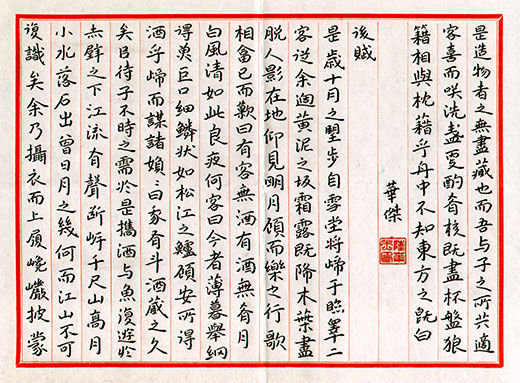 是造物者之無盡藏也而吾与子之所共適
客喜而咲洗盞更酌肴核既盡杯盤狼
籍相與枕籍乎舟中不知東方之既白
華傑
後賦
是歲十月之望步自雪堂將歸于臨皋二
客從余過黄泥之坂霜露既降木葉盡
脱人影在地仰見明月顧而樂之行歌
相畣已而歎曰有客無酒有酒無肴月
白風清如此良夜何客曰今者薄暮舉網
得魚巨口細鱗狀如松江之鱸顧安所得
酒乎歸而謀諸婦〻曰我有斗酒藏之久
矣以待子不時之需於是攜酒与魚復遊於
赤壁之下江流有聲斷岸千尺山高月
小水落石出曾日月之幾何而江山不可
復識矣余乃攝衣而上履巉巖披蒙